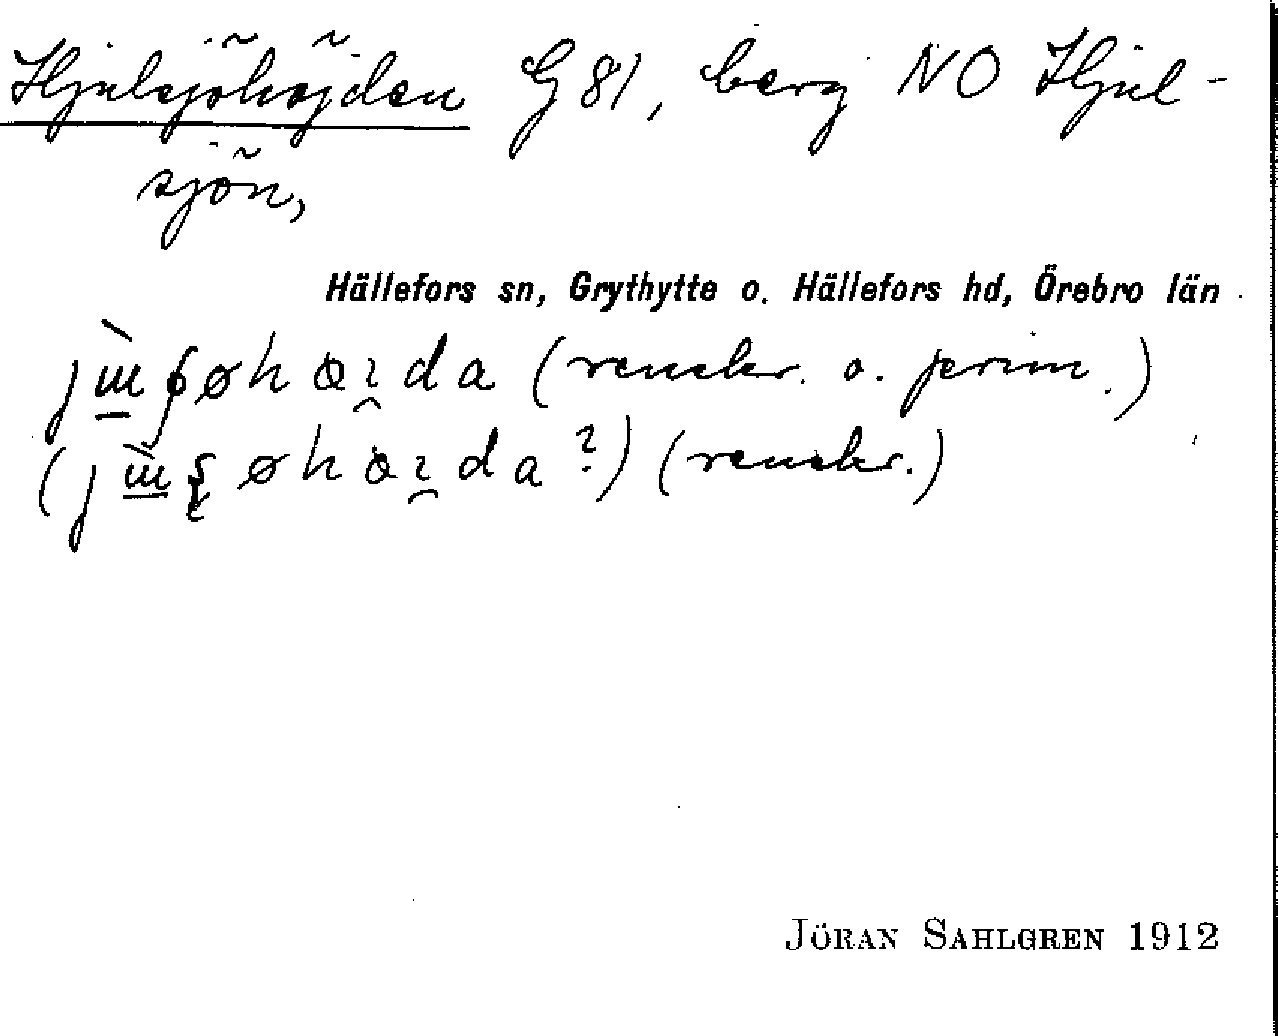 Hjulsjöhöjden G 81, berg NO Hjul-
sjön,
Hällefors sn, Grythytte o. Hällefors hd, Örebro län
(renskr. o. prim.)
(renskr.)
JÖRAN SAHLGREN 1912